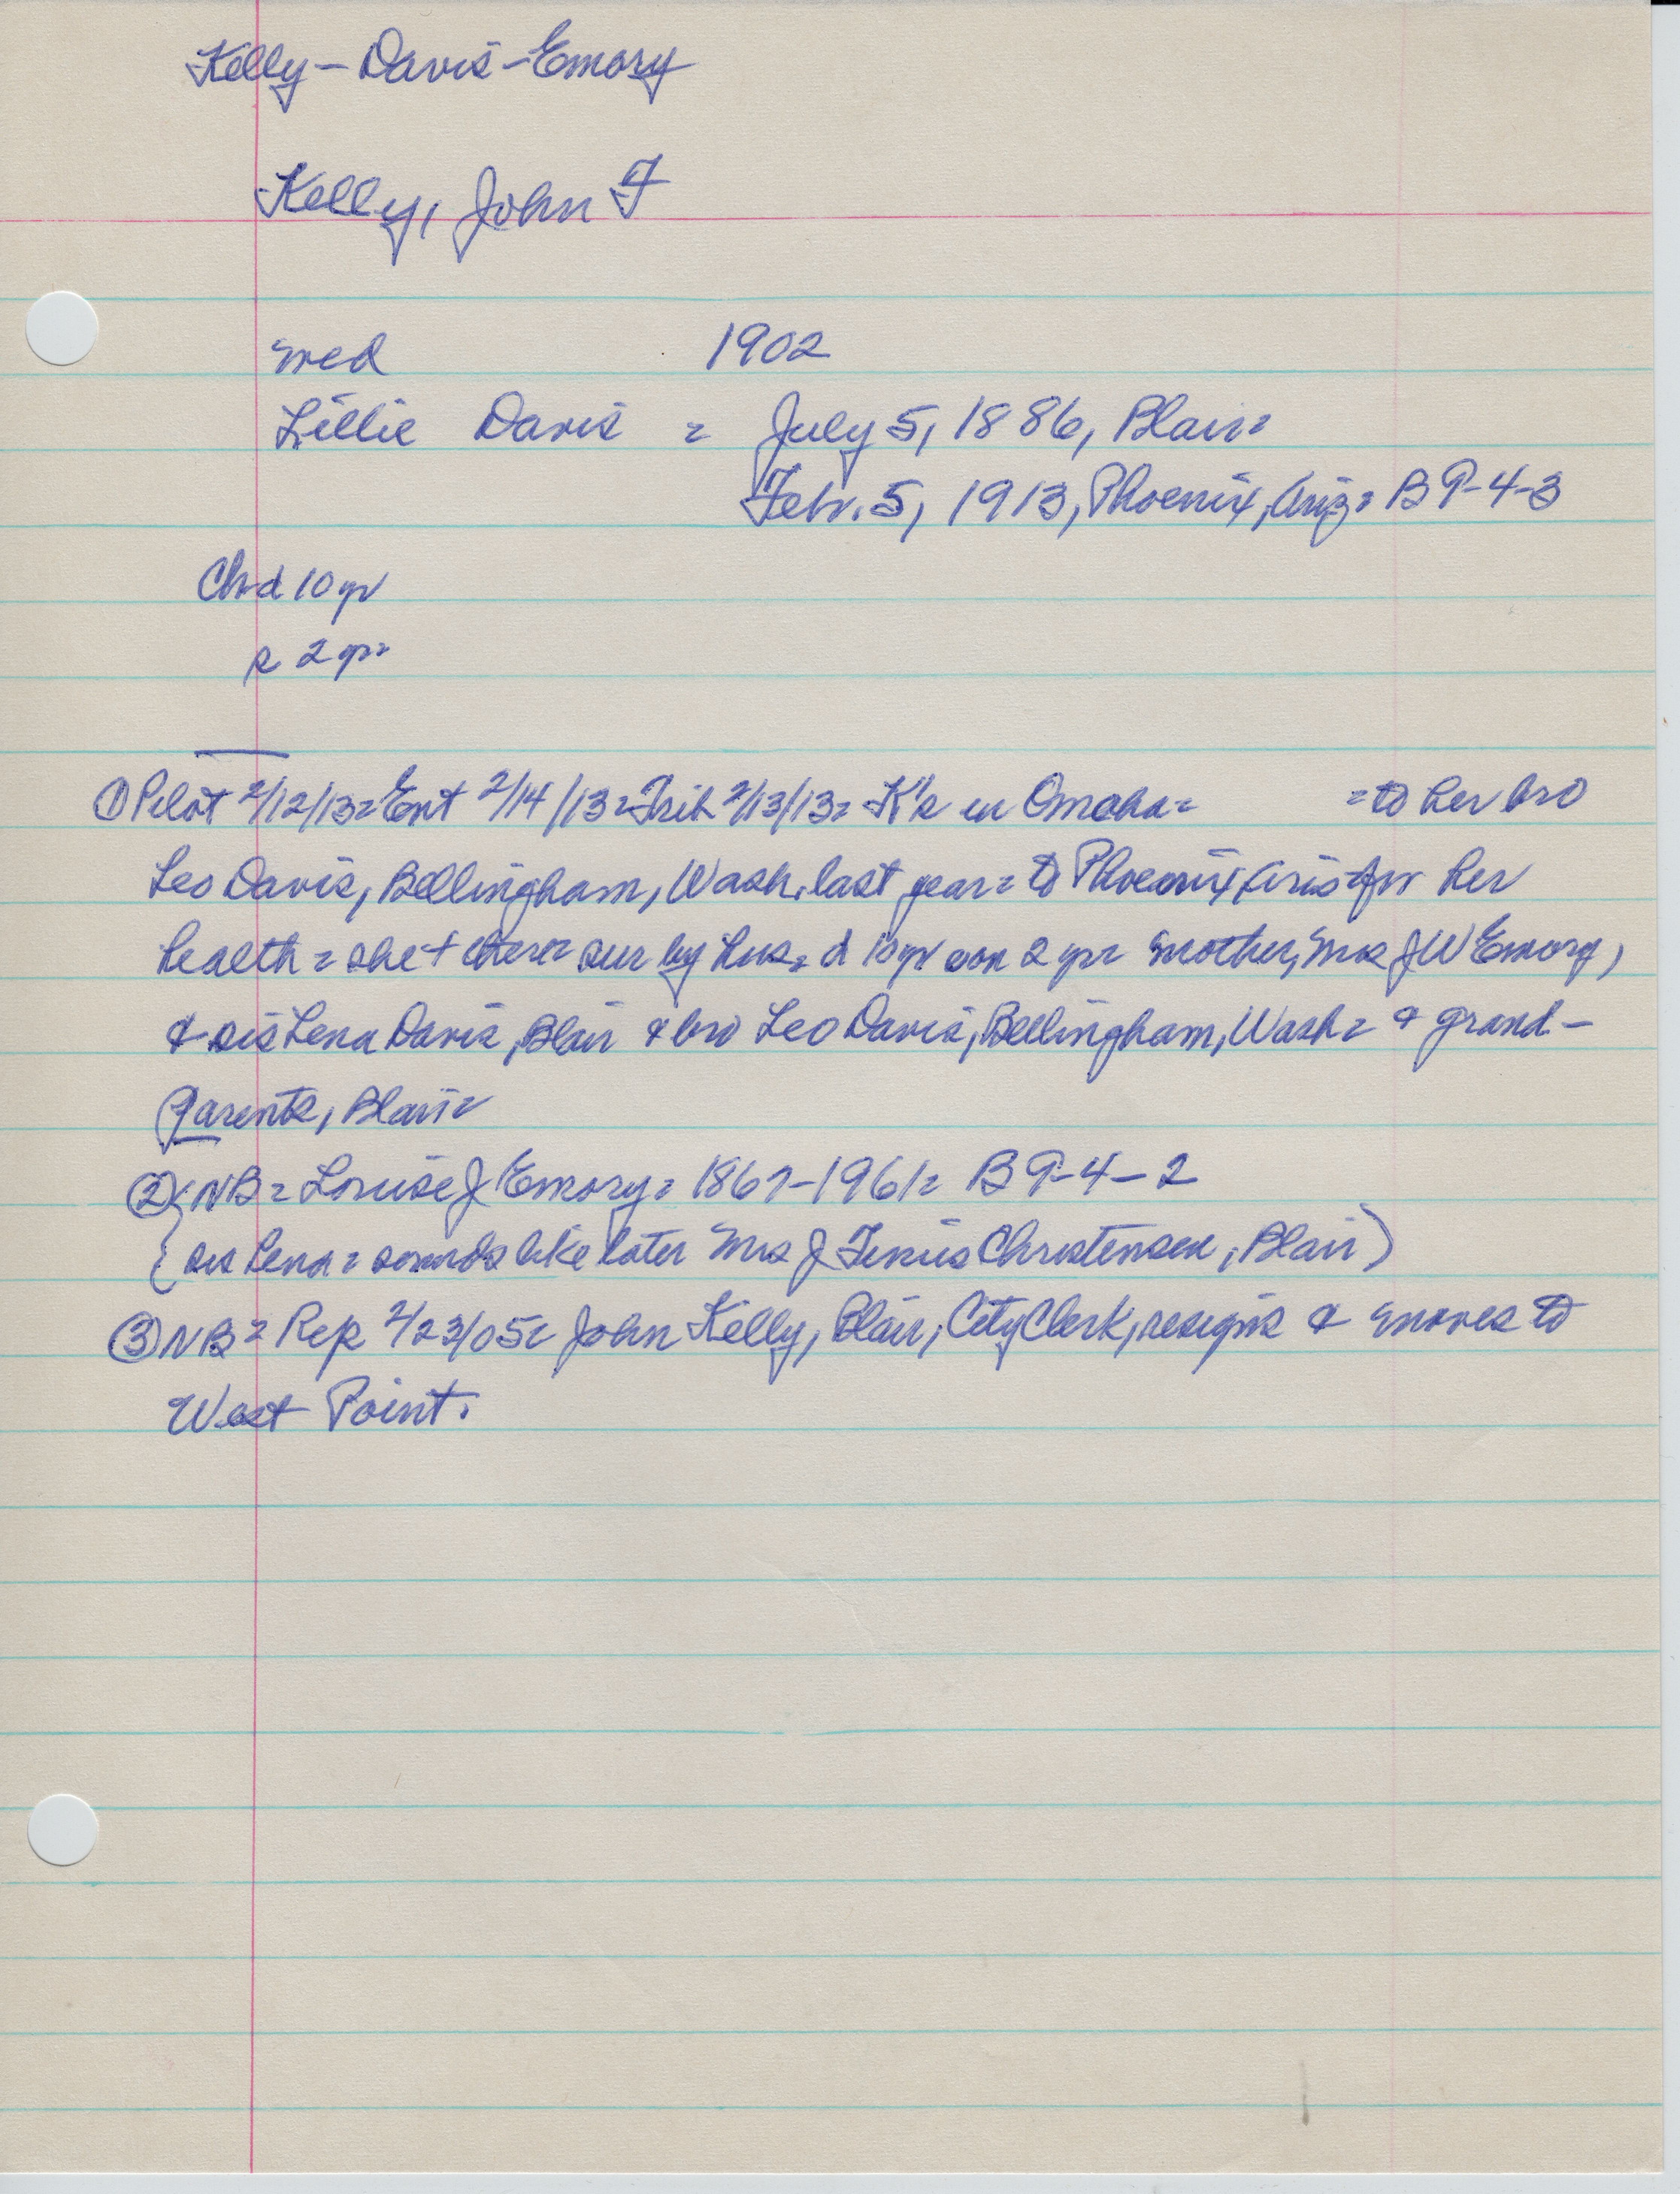 Kelly - Davis - Emory
Kelly, John F
wed 1902
Lillie Davis = July 5, 1886, Blair=
Febr. 5, 1913, Phoenix, Ariz= B 9-4-3
Ch-d 10 yr
s 2 yr=
① Pilot 2/12/13= Ent 2/14/13= Trib 2/13/13= K's in Omaha= =to her bro
Leo Davis, Bellingham, Wash. last year= to Phoenix, Aris= for her
health= she + there= sur by hus, d 10 yr son 2 yr= mother, Mrs J W Emory,
& sis Lena Davis, Blair & bro Leo Davis, Bellingham, Wash= & grand-
parents, Blair=
② NB= Louise J Emory= 1867-1961= B 9-4-2
{sis Lena= sounds like later Mrs J Christensen, Blair)
③ NB= Rep 2/23/05= John Kelly, Blair, City Clerk, resigns & moves to
West Point.